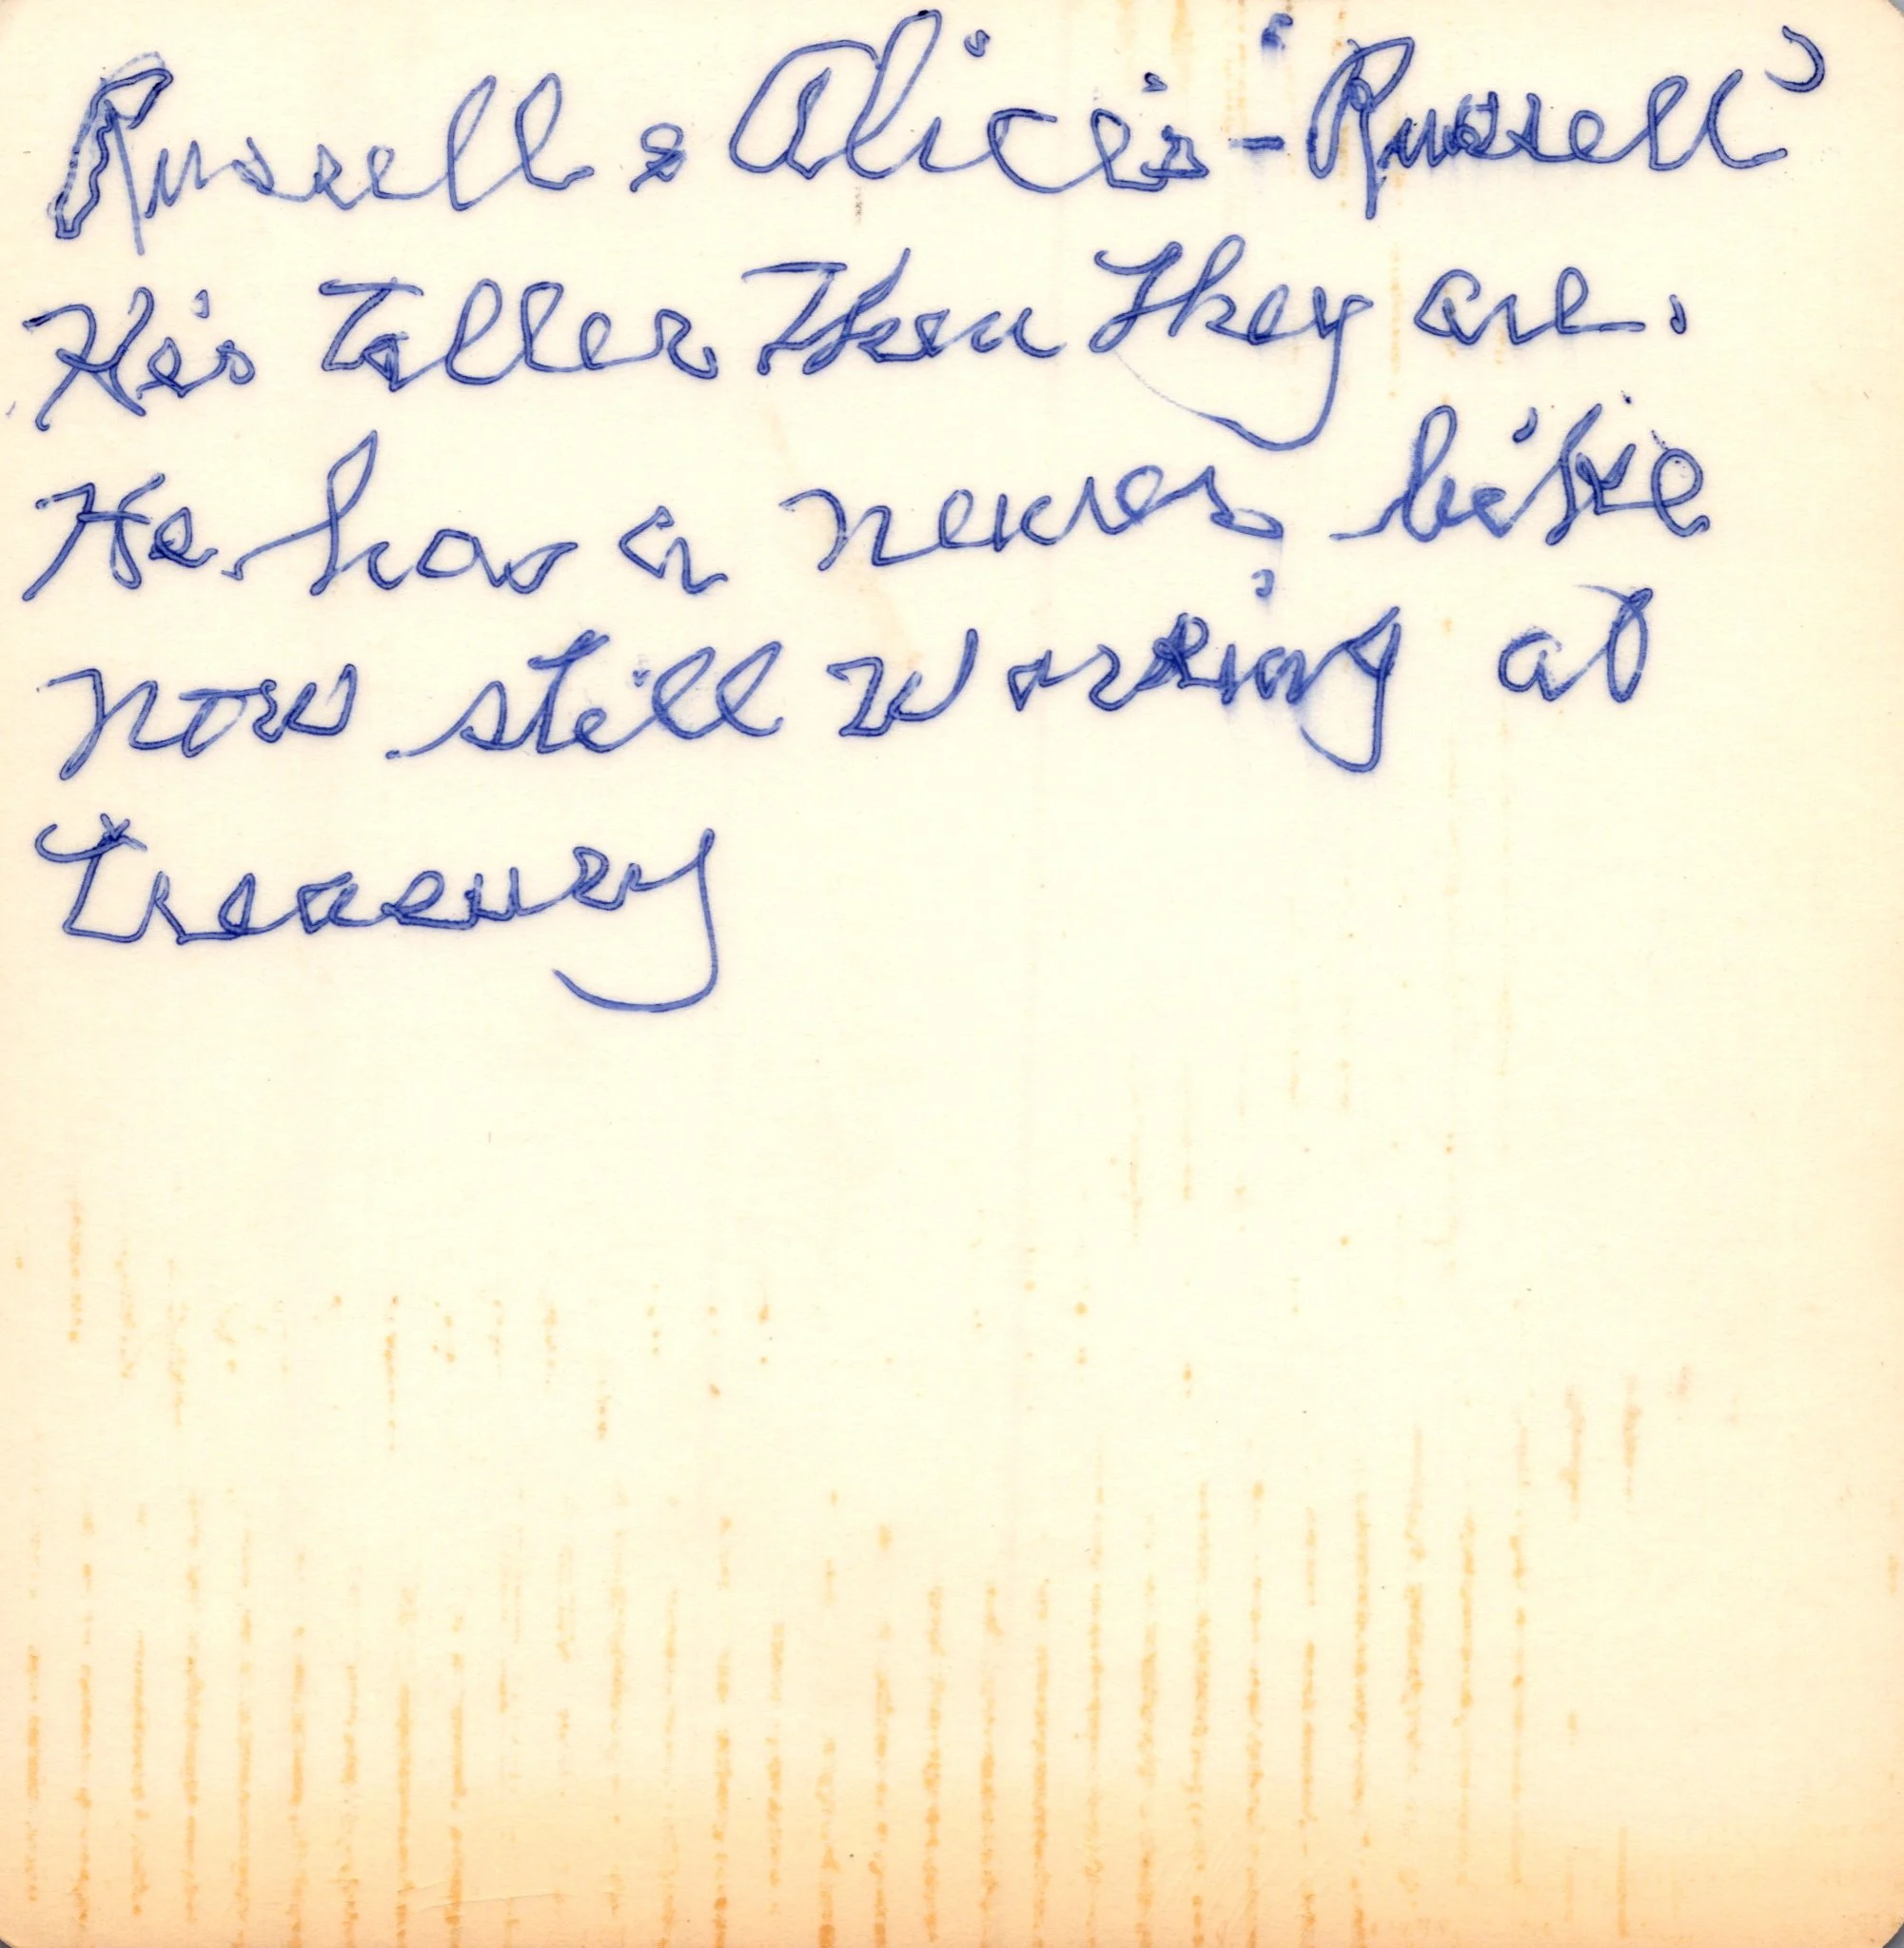 Russell & Alice's - "Russell"
He's Taller Then They are.
He has a newer bike
now still working at
Treasury